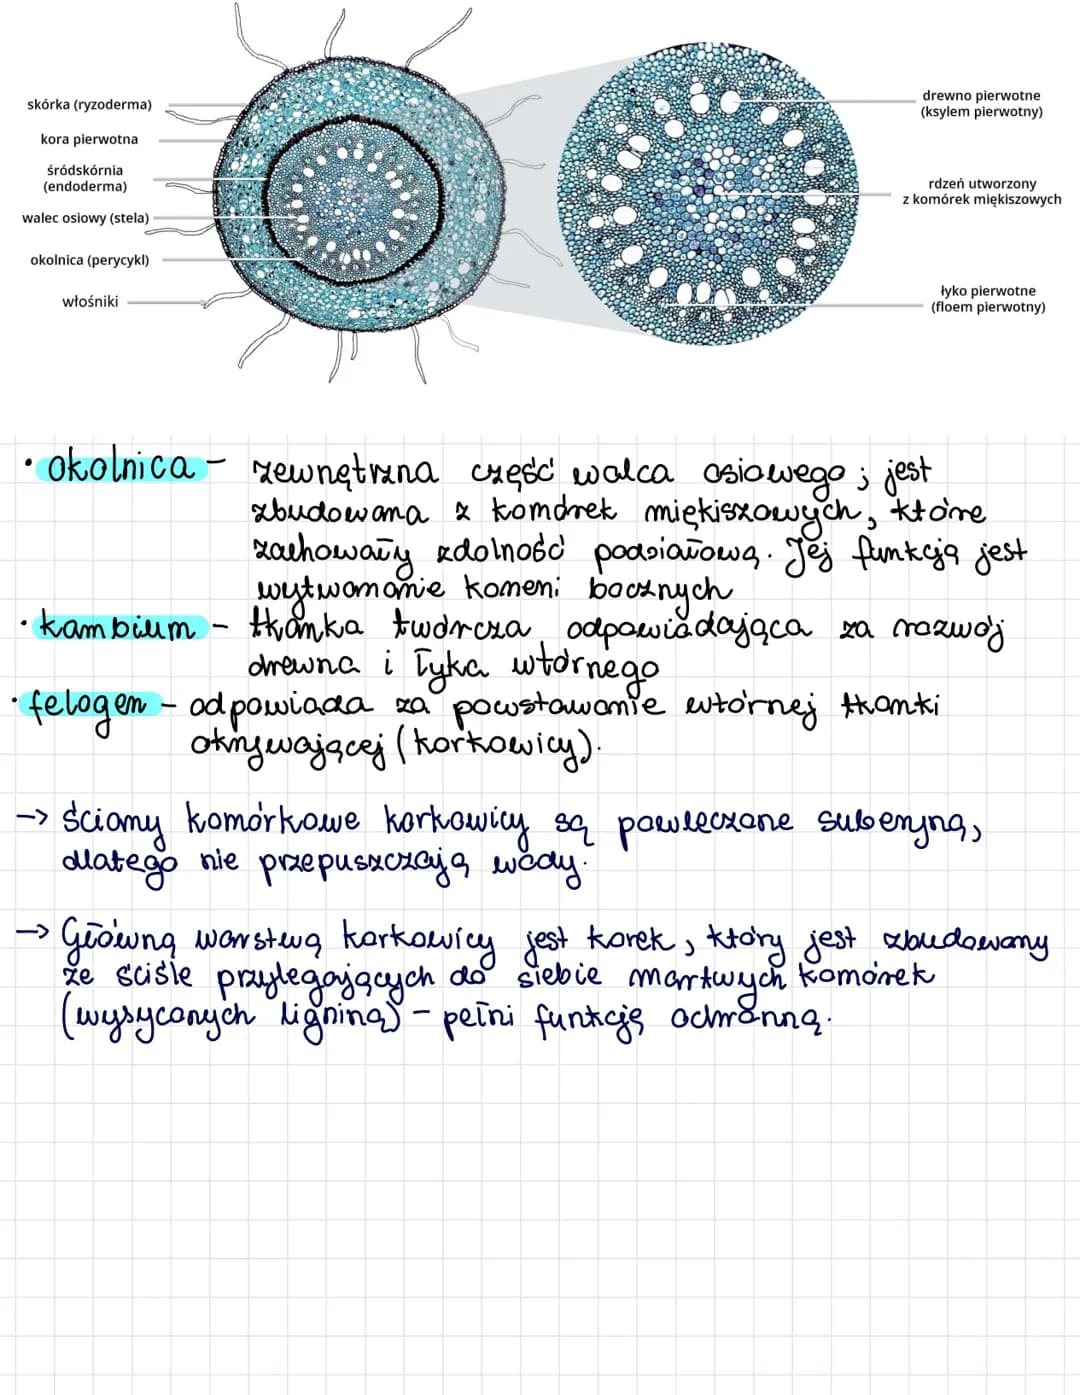 skórka (ryzoderma)
kora pierwotna
śródskórnia
(endoderma)
walec osiowy (stela)
okolnica (perycykl)
włośniki
drewno pierwotne
(ksylem pierwotny)
rdzeń utworzony
z komórek miękiszowych
łyko pierwotne
(floem pierwotny)
• okolnica - zewnętrzna część walca osiowego; jest
zbudowana z komórek miękiszowych, które
zachowały zdolność podziałową. Jej funkcją jest
wytwarzanie korzeni bocznych
• kambium - tkanka twórcza odpowiadająca za rozwój
drewna i łyka wtórnego
• felogen - odpowiada za powstawanie wtórnej tkanki
okrywającej (korkowicy).
-> ściany komórkowe korkowicy są powleczone suberyną,
dlatego nie przepuszczają wody.
-> Główną warstwą korkowicy jest korek, który jest zbudowany
ze ściśle przylegających do siebie martwych komórek
(wysyconych ligniną) - pełni funkcję ochronną.